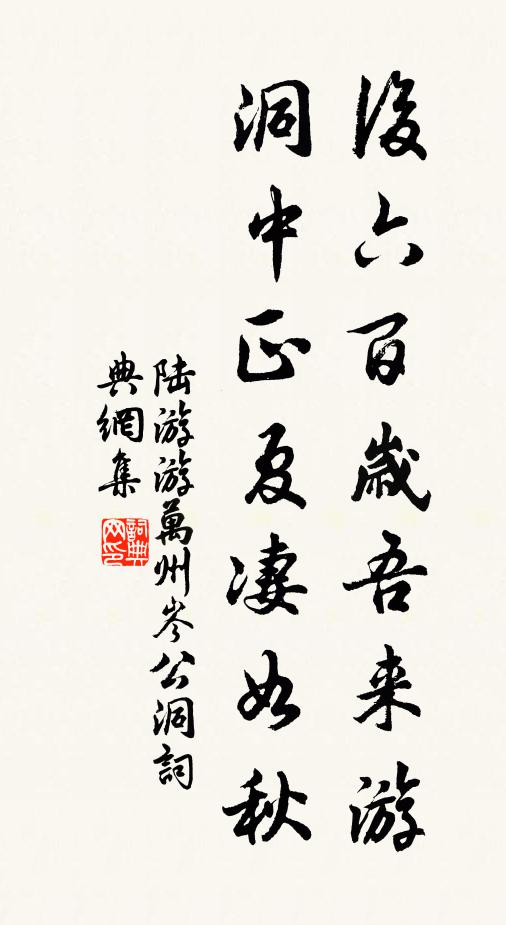 後六百歲吾来游
洞中正夏凄如秋
陆游游萬州岑公洞詞
典網集
詞典
网印